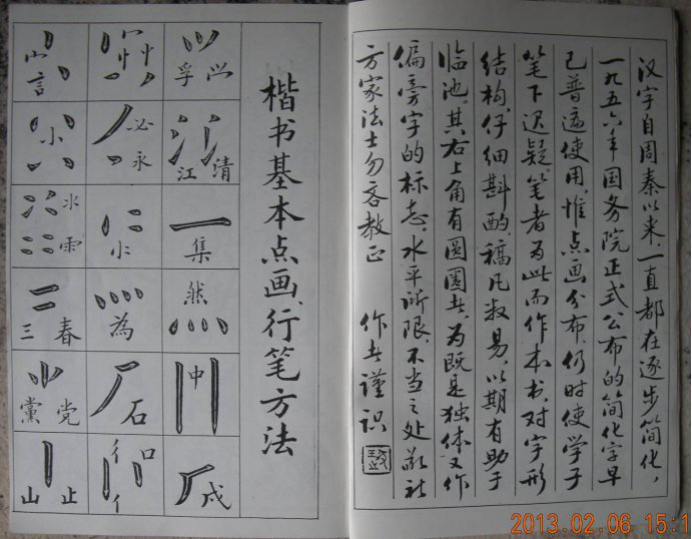 汉字自周秦以来,一直都在逐步简化,
一九五六年国务院正式公布的简化字早
已普遍使用,惟点画分布,仍时使学子
笔下迟疑,笔者为此而作本书,对字形
结构,仔细斟酌,稿凡数易,以期有助于
临池。其右上角有圆圈者,为既是独体又作
偏旁字的标志。水平所限,不当之处敬祈
方家法士勿吝教正 作者谨识
楷书基本点画、行笔方法
孚
清 江
集
然
中
戍
必 永
為
石
口 彳 亻
言
小
雨
春 三
党 黨
止 山
2013.02.06 15:1